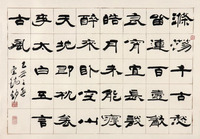 滌蕩千古愁
留連百壺飲
良宵宜清談
皓月未能寢
醉來臥空山
天地即衾枕
李太白五言
古風